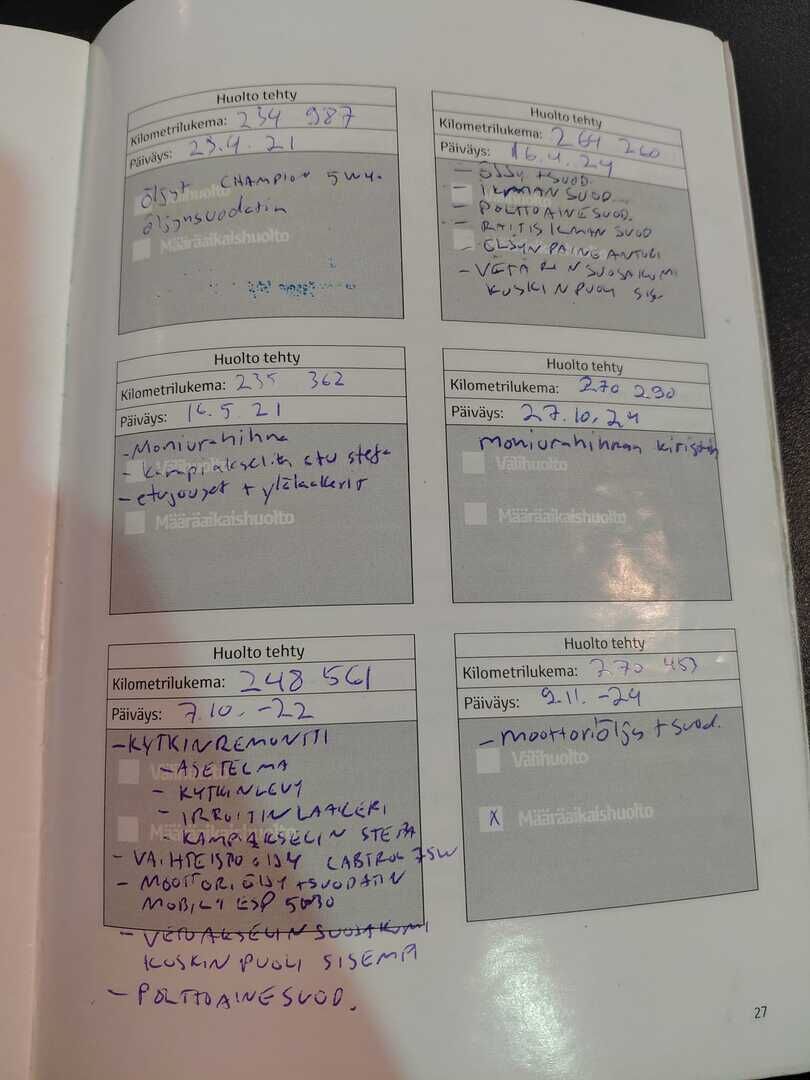 Huolto tehty
Kilometrilukema: 234 987
Päiväys: 23.4.21
Öljyt CHAMPION 5W4.
öljynsuodatin
Välihuolto
Määräaikaishuolto
Huolto tehty
Kilometrilukema: 235 362
Päiväys: 16.5.21
- Moniurahihna
- kampiakselin etu stefa
- etujouset + ylälaakerit
Välihuolto
Määräaikaishuolto
Huolto tehty
Kilometrilukema: 248 561
Päiväys: 7.10.-22
- KYTKINREMONTTI
- ASETELMA
- KYTKINLEVY
- IRROITINLAAKERI
- KAMPIAKSELIN STEFA
- VAIHTEISTOÖLJY 75W
- MOOTTORIÖLJY + SUODATIN
MOBIL 1 ESP 5W30
- VETOAKSELIN SUOJAKUMI
KUSKIN PUOLI SISEMPI
- POLTTOAINESUOD.
Välihuolto
Määräaikaishuolto
Huolto tehty
Kilometrilukema: 264 260
Päiväys: 16.4.24
- ÖLJY + SUOD.
- ILMANSUOD.
- POLTTOAINESUOD.
- RAITISILMANSUOD
- ÖLJYNPAINEANTURI
- SUOJAKUMI
KUSKIN PUOLI SIS.
Huolto tehty
Kilometrilukema: 270 290
Päiväys: 27.10.24
moniurahihnan kiristin
Välihuolto
Määräaikaishuolto
Huolto tehty
Kilometrilukema: 270 453
Päiväys: 9.11.-24
- moottoriöljy + suod.
Välihuolto
X Määräaikaishuolto
27